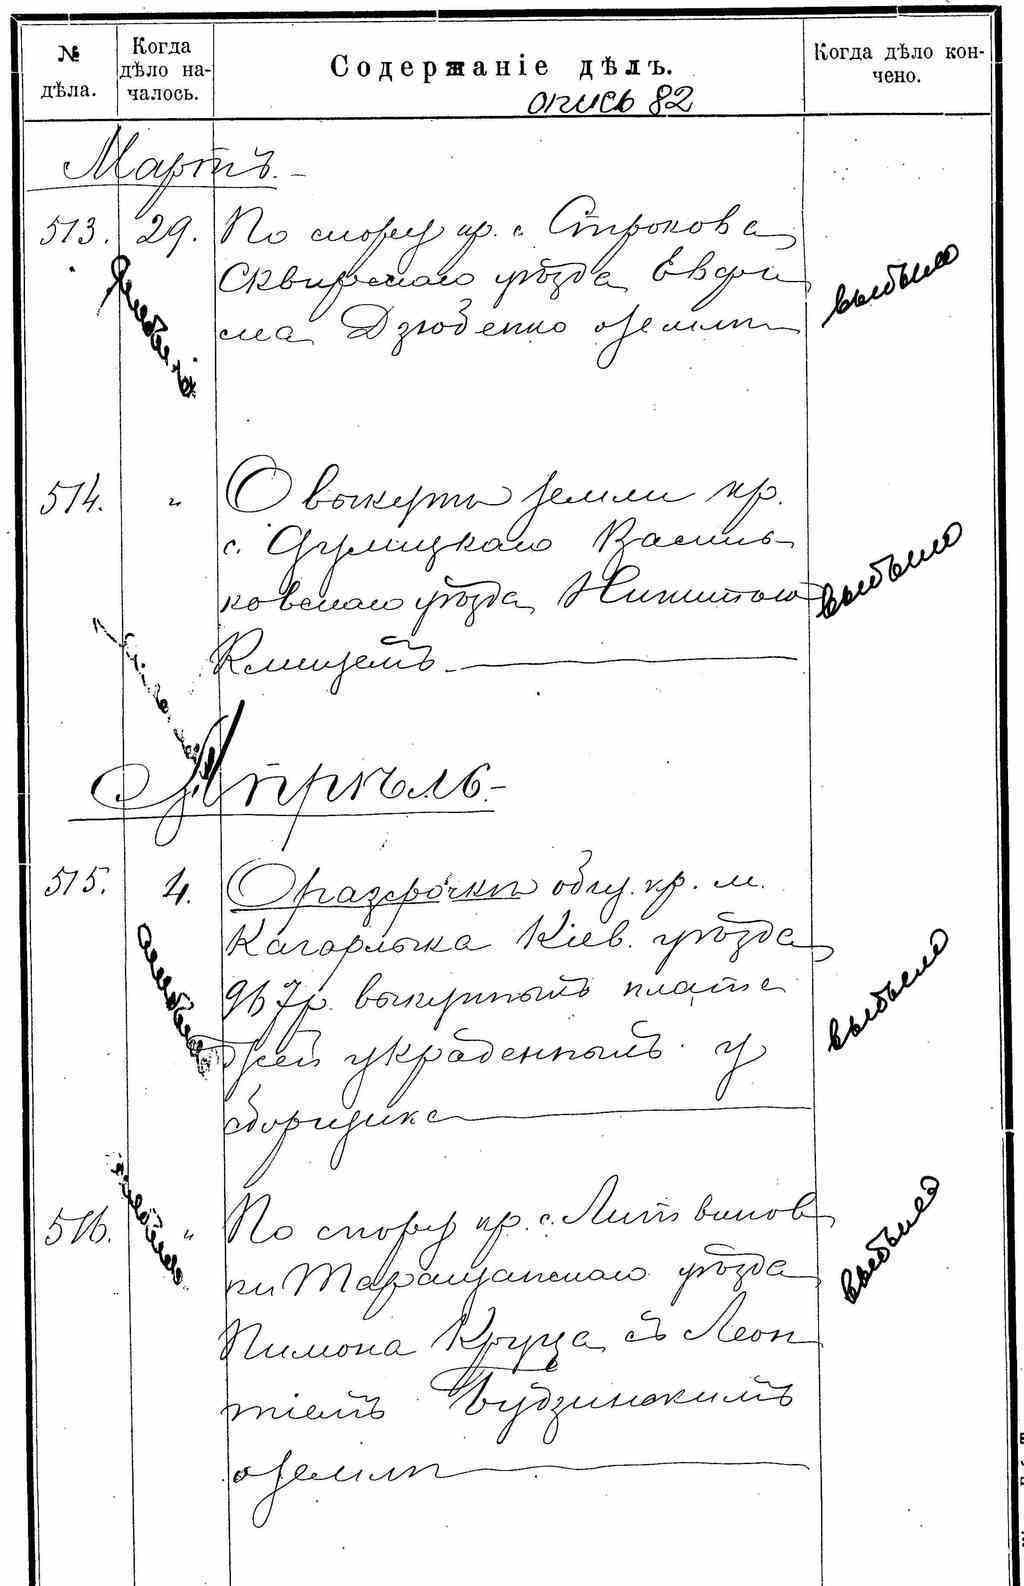 № дѣла.
Когда дѣло на-
чалось.
Содержаніе дѣлъ.
Когда дѣло кон-
чено.
опись 82
Мартъ.
513. 29. По спору кр. с. Строкова
Сквирскаго уѣзда Евфи
ма Дзюбенко о земли
выбыло
514. " О выкупѣ земли кр.
с. Василь
ковскаго уѣзда Никитою
Клищемъ.
выбыло
Апрѣль.
515. 4. О разсрочкѣ общ. кр. м.
Кагарлыка Кіев. уѣзда
967 р. выкупныхъ плате
жей украденныхъ у
сборщика
выбыло
516. " По спору кр. с. Литвинов
ки Таращанскаго уѣзда
Пимона съ Леон
тіемъ Будзинскимъ
о земли
выбыло